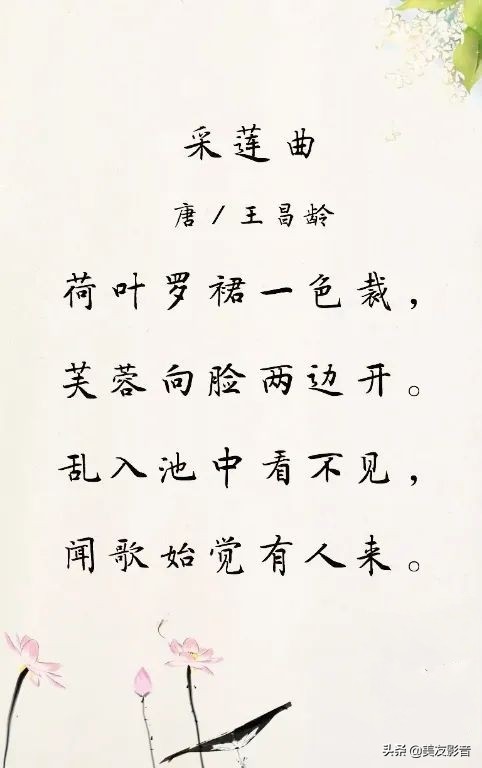 采莲曲
唐/王昌龄
荷叶罗裙一色裁，
芙蓉向脸两边开。
乱入池中看不见，
闻歌始觉有人来。
头条@美友影音